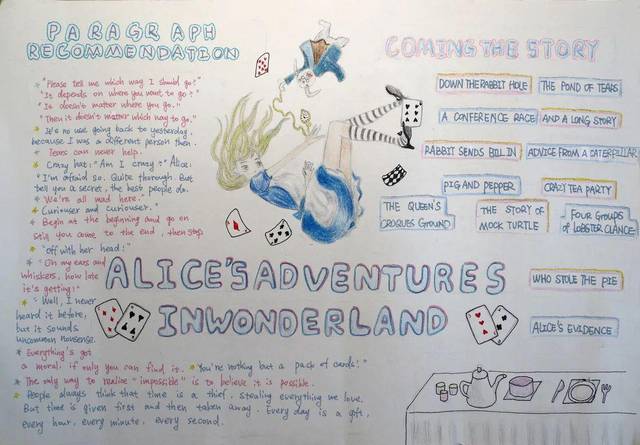 PARAGRAPH
RECOMMENDATION
"Please tell me which way I should go?"
"It depends on where you want to go?"
"It doesn't matter where you go."
"Then it doesn't matter which way to go."
It's no use going back to yesterday,
because I was a different person then.
Tears can never help.
Crazy hat: "Am I crazy?" Alice:
"I'm afraid so. Quite thorough. But
tell you a secret, the best people do.
We're all mad here.
Curiouser and curiouser."
Begin at the beginning and go on
till you come to the end, then stop.
"Off with her head!"
"Oh my ears and
whiskers, how late
it's getting!"
"Well, I never
heard it before,
but it sounds
uncommon nonsense.
Everything's got
a moral, if only you can find it. "You're nothing but a pack of cards!"
The only way to realize "impossible" is to believe it is possible.
People always think that time is a thief, stealing everything we love.
But time is given first and then taken away. Every day is a gift,
every hour, every minute, every second.
ALICE'S ADVENTURES
IN WONDERLAND
COMING THE STORY
DOWN THE RABBIT HOLE
THE POND OF TEARS
A CONFERENCE RACE
AND A LONG STORY
RABBIT SENDS BILL IN
ADVICE FROM A CATERPILLAR
PIG AND PEPPER
CRAZY TEA PARTY
THE QUEEN'S
CROQUES GROUND
THE STORY OF
MOCK TURTLE
FOUR GROUPS
OF LOBSTER CLANCE
WHO STOLE THE PIE
ALICE'S EVIDENCE